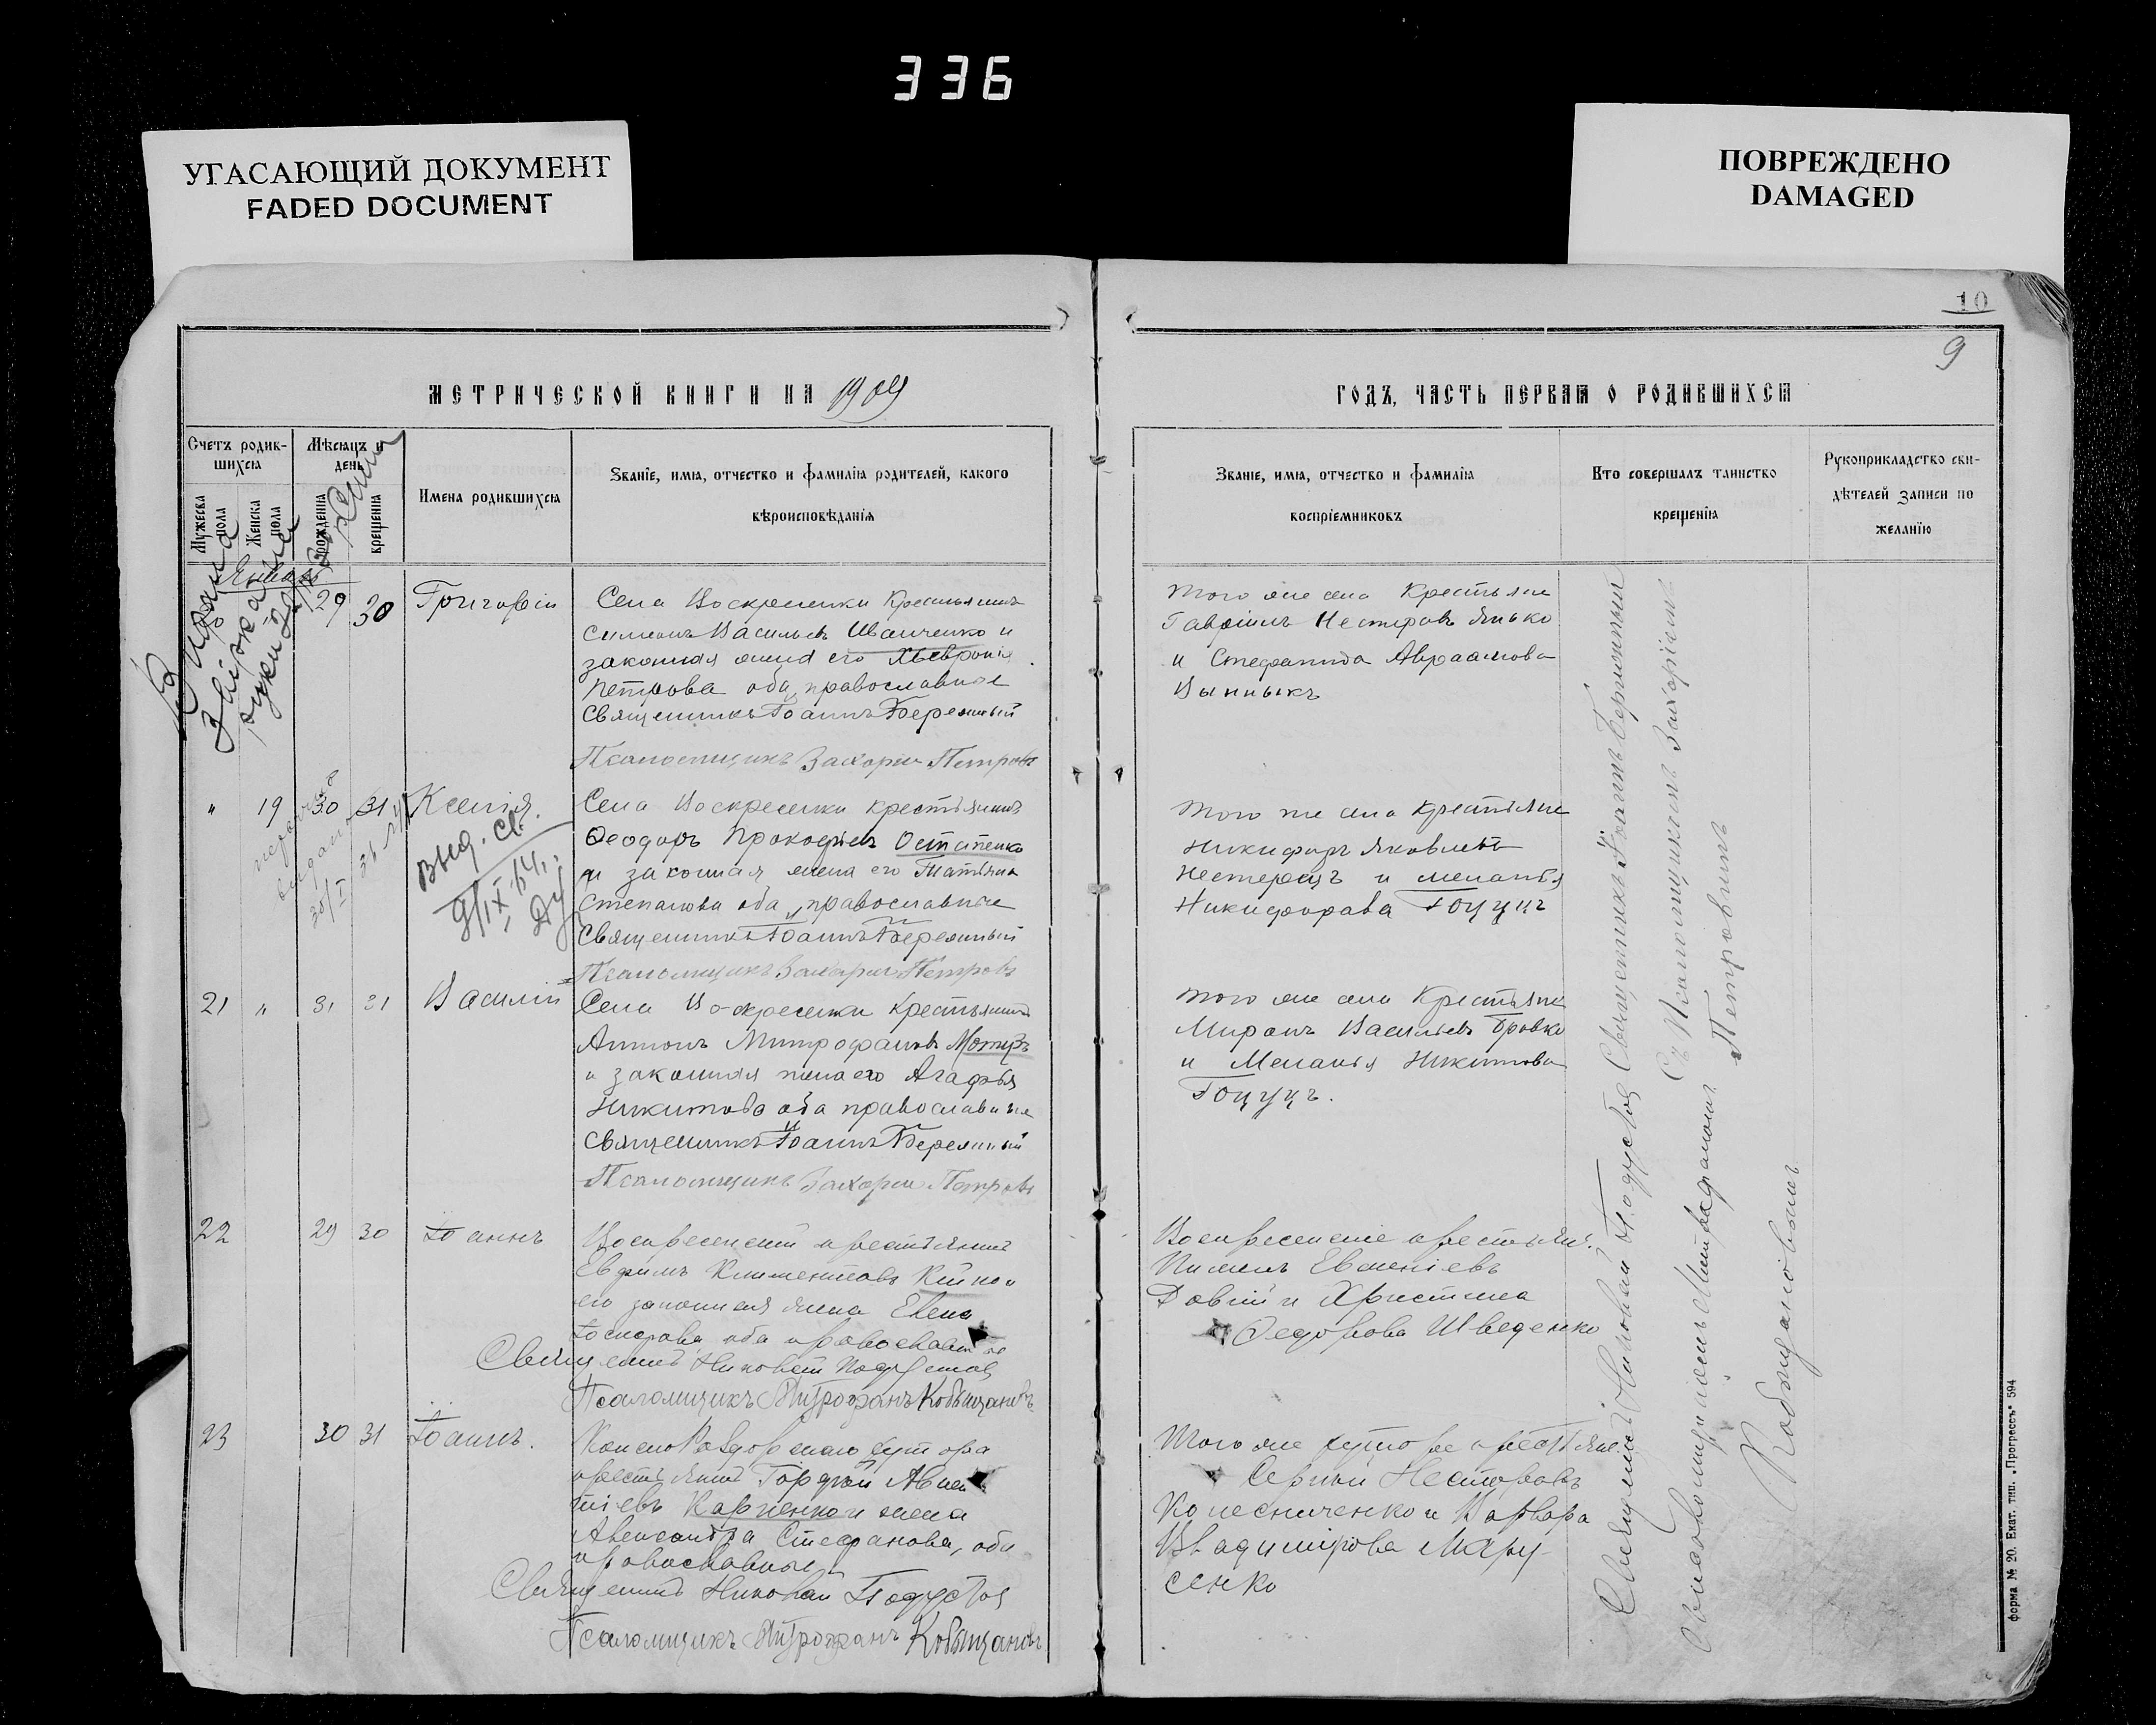 336
УГАСАЮЩИЙ ДОКУМЕНТ
FADED DOCUMENT
ПОВРЕЖДЕНО
DAMAGED
10
9
МЕТРИЧЕСКОЙ КНИГИ НА 1909
ГОДЪ, ЧАСТЬ ПЕРВАЯ О РОДИВШИХСЯ
Счетъ родив-
шихся
Мужеска
пола
Женска
пола
Мѣсяцъ и
день
рожденія
крещенія
Имена родившихся
Званіе, имя, отчество и фамилія родителей, какого
вѣроисповѣданія
Званіе, имя, отчество и фамилія
воспріемниковъ
Кто совершалъ таинство
крещенія
Рукоприкладство сви-
дѣтелей записи по
желанію
Январь
29 30 Григорій
Села Воскресенки Крестьянинъ
Симеонъ Васильевъ Иванченко и
законная жена его Хѳевронія
Петрова оба православные
Священникъ Іоаннъ Бережный
Псаломщикъ Захарій Петровъ
Того же села Крестьяне
Гавріилъ Нестеровъ Янько
и Стефанида Авраамова
Вынныкъ
" 19 30 31 Ксенія.
выд. св.
Села Воскресенки крестьянинъ
Ѳеодоръ Прокофіевъ Остапенко
и законная жена его Татьяна
Степанова оба православные
Священникъ Іоаннъ Бережный
Псаломщикъ Захарій Петровъ
Того же села крестьяне
Никифоръ Яковлевъ
Нестерецъ и Меланья
Никифорова Гоцуцъ
21 " 31 31 Василій
Села Воскресенки Крестьянинъ
Антонъ Митрофановъ
и законная жена его Агафья
Никитова оба православные
Священникъ Іоаннъ Бережный
Псаломщикъ Захарій Петровъ
Того же села Крестьяне
Миронъ Васильевъ Бровко
и Меланья Никитова
Гоцуцъ.
22 29 30 Іоаннъ
Воскресенскій крестьянинъ
Евфимъ Климентовъ
его законная жена Елена
оба православные
Священникъ Николай Подустов
Псаломщикъ Митрофанъ Кобыщановъ
Воскресенские крестьян.
Пименъ Евменіевъ
Довгій и Христина
Ѳедорова Шведенко
23 30 31 Іоаннъ.
хутора
крестьянинъ Гордій
Карпенко и жена
Александра Стефанова, оба
православные
Священникъ Николай Подустов
Псаломщикъ Митрофанъ Кобыщановъ
Того же хутора крестьяне
Сергій Нестеровъ
Колесниченко и Варвара
Владимірова Мару-
сенко
Священникъ Іоаннъ Бережный
Съ Псаломщикомъ Захаріемъ
Петровымъ
Священникъ Николай Подустов
Псаломщикомъ Митрофаномъ
Кобыщановымъ
форма № 20. Екат. тип. „Прогрессъ" 594